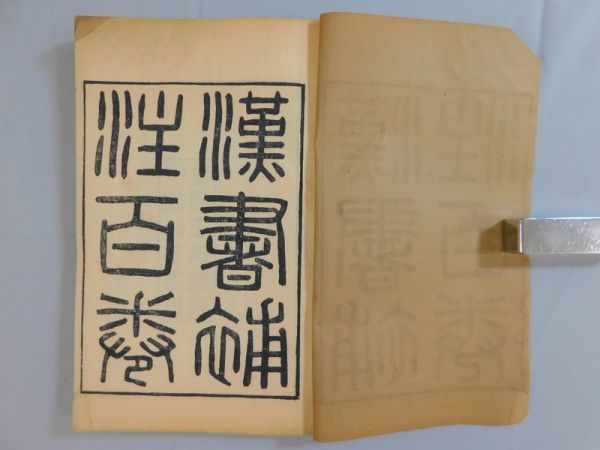 漢書補
注百卷